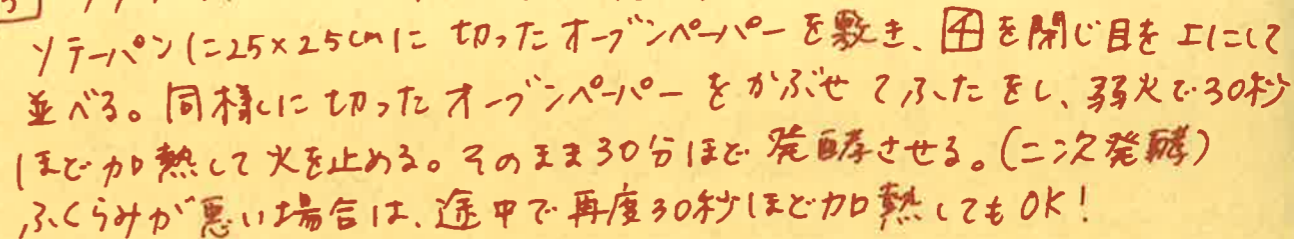 ソテーパンに25×25cmに切ったオーブンペーパーを敷き、4を閉じ目を上にして
並べる。同様に切ったオーブンペーパーをかぶせてふたをし、弱火で30秒
ほど加熱して火を止める。そのまま30分ほど発酵させる。(二次発酵)
ふくらみが悪い場合は、途中で再度30秒ほど加熱してもOK!